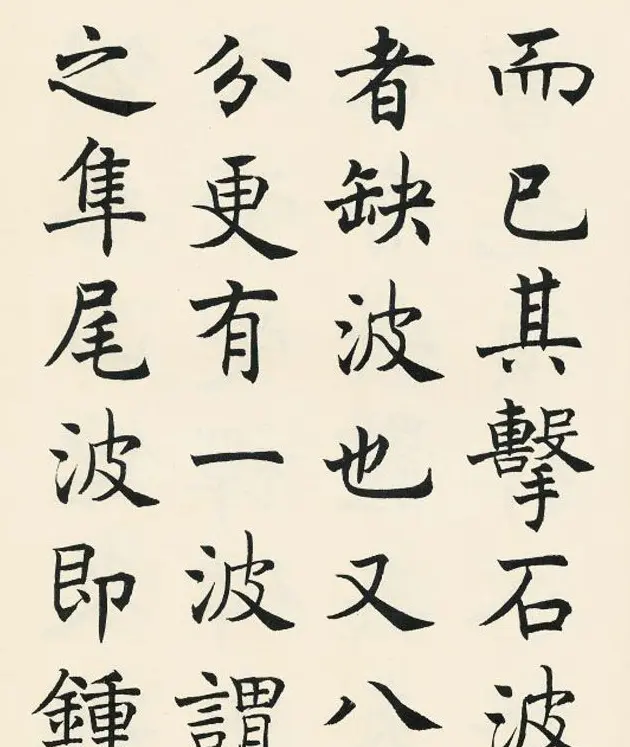 而已其擊石波
者缺波也又八
分更有一波謂
之隼尾波即鍾